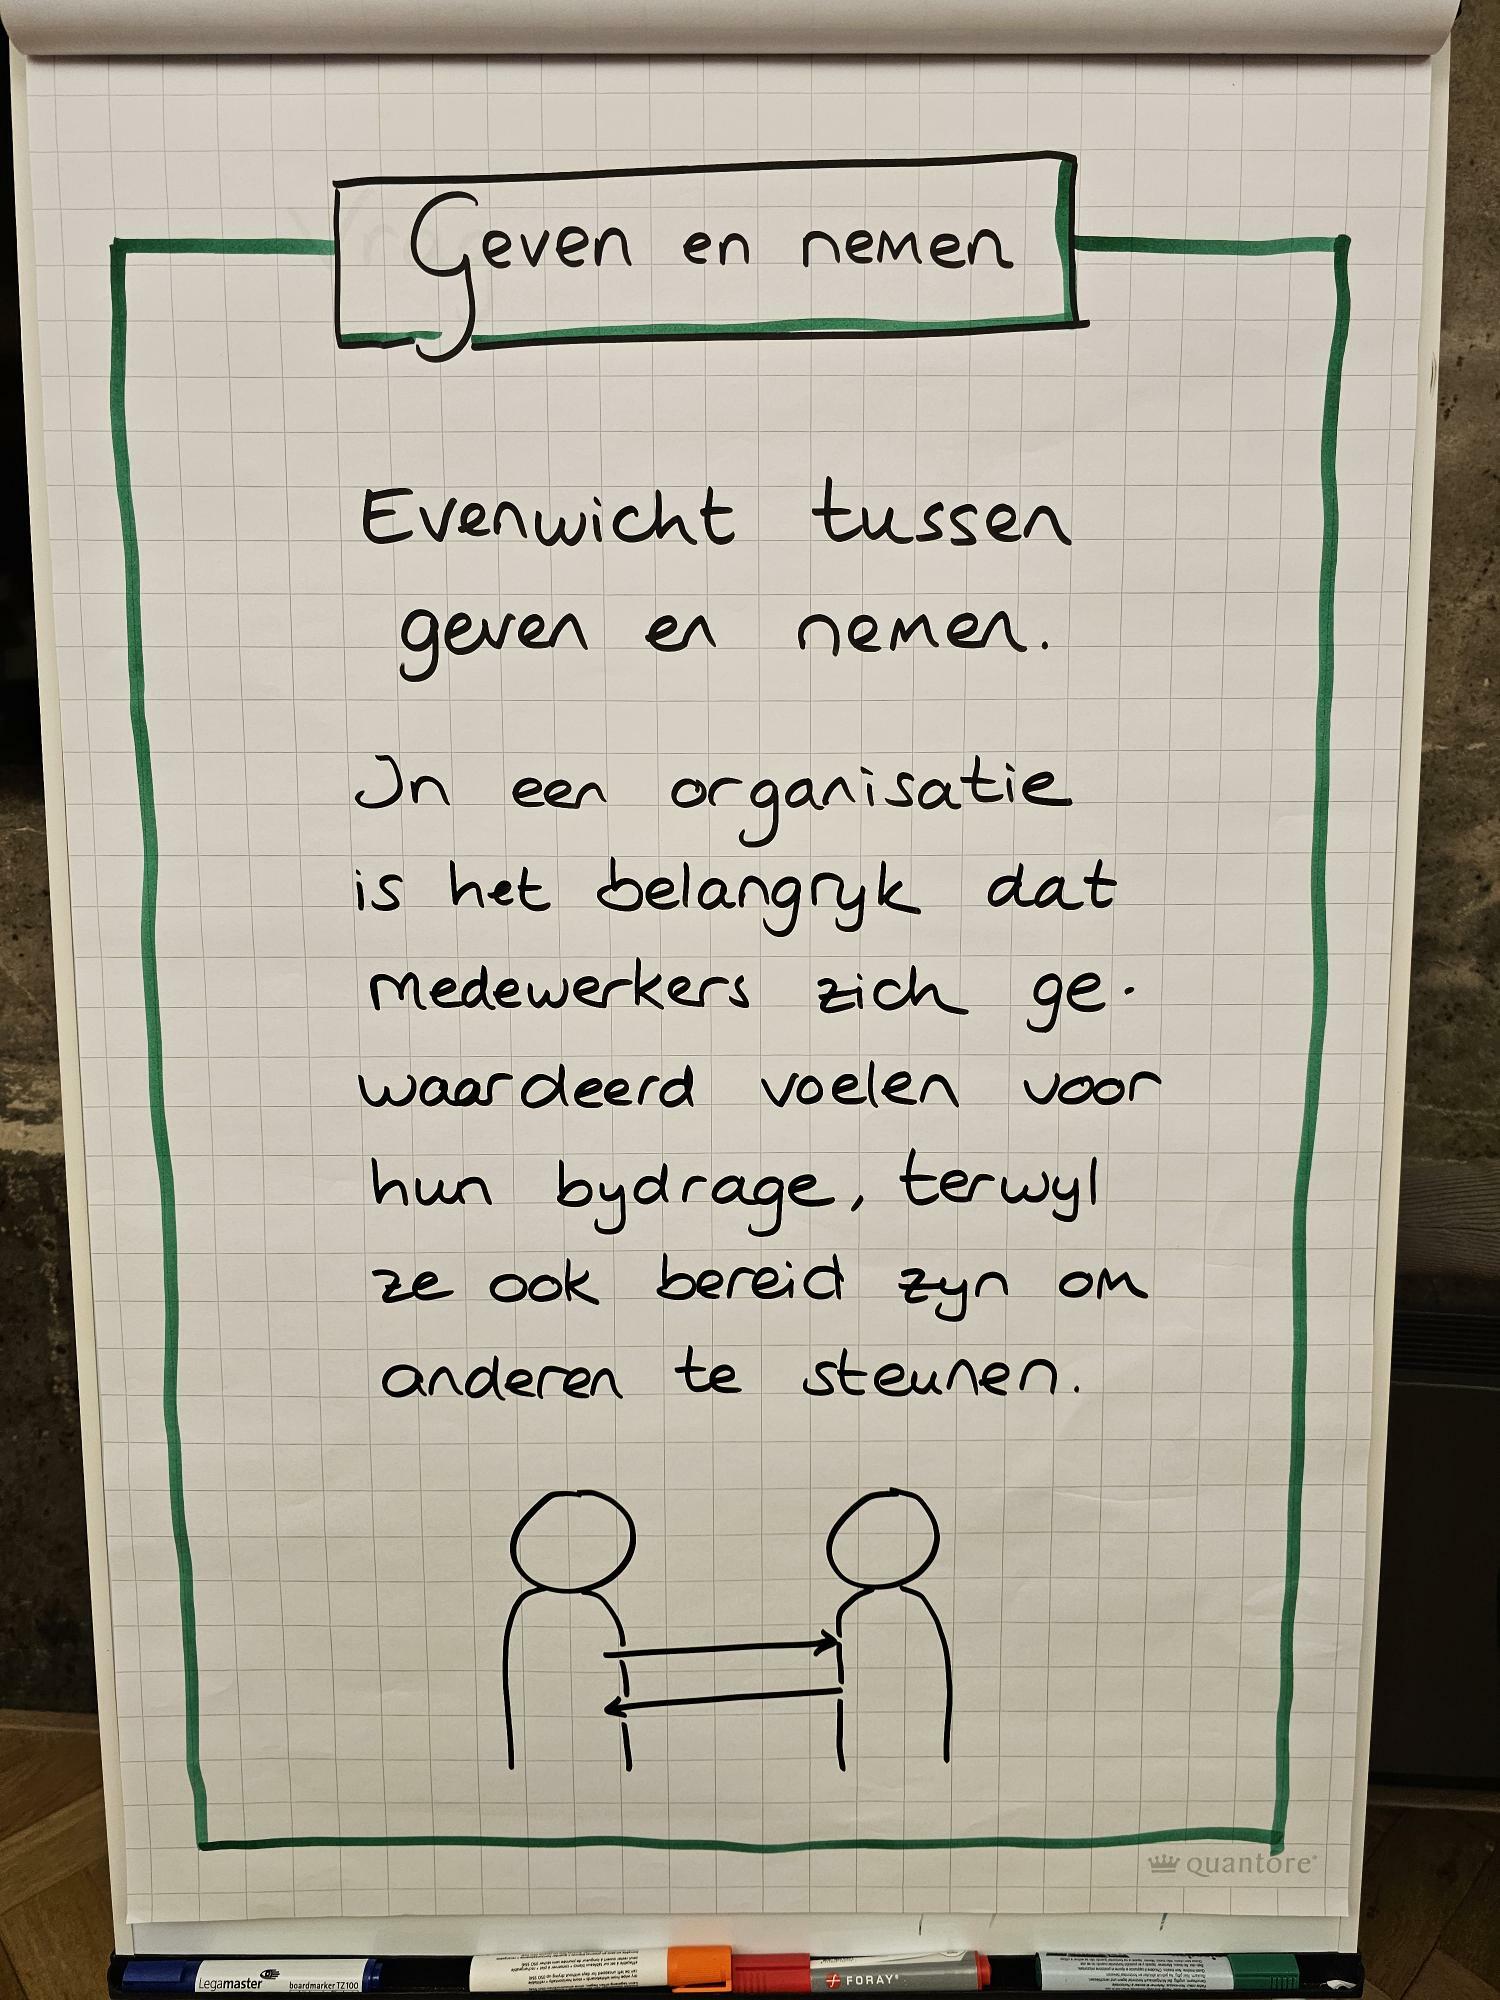 Geven en nemen
Evenwicht tussen
geven en nemen.
In een organisatie
is het belangryk dat
medewerkers zich ge-
waardeerd voelen voor
hun bydrage, terwyl
ze ook bereid zyn om
anderen te steunen.
quantore
Legamaster boardmarker TZ100
FORAY